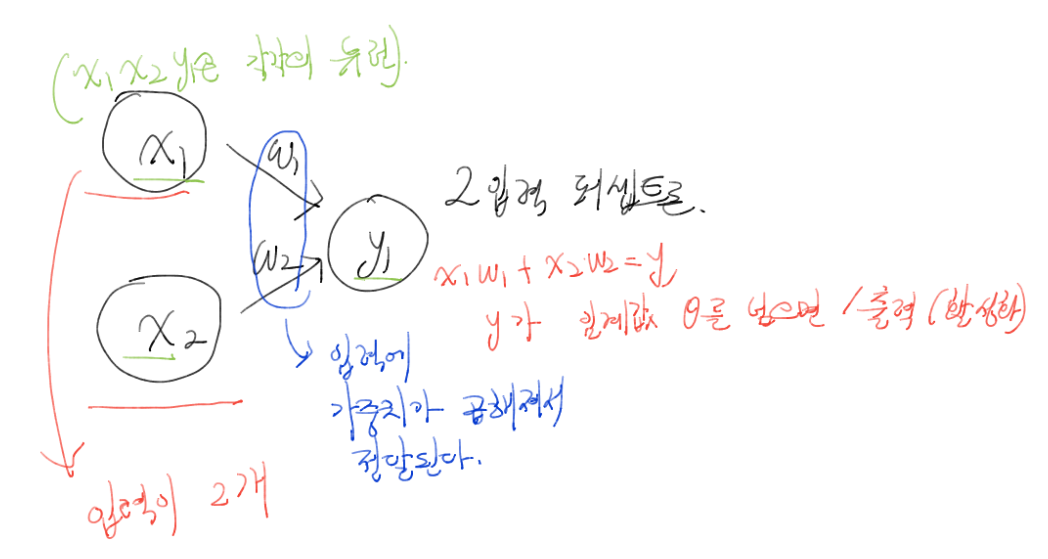 (x₁ x₂ y₁은 각각의 뉴런).
x₁
w₁
2입력 퍼셉트론.
w₂
y₁
x₁w₁ + x₂w₂ = y
y가 임계값 θ를 넘으면 1출력 (활성화)
x₂
입력에
가중치가 곱해져서
전달된다.
입력이 2개